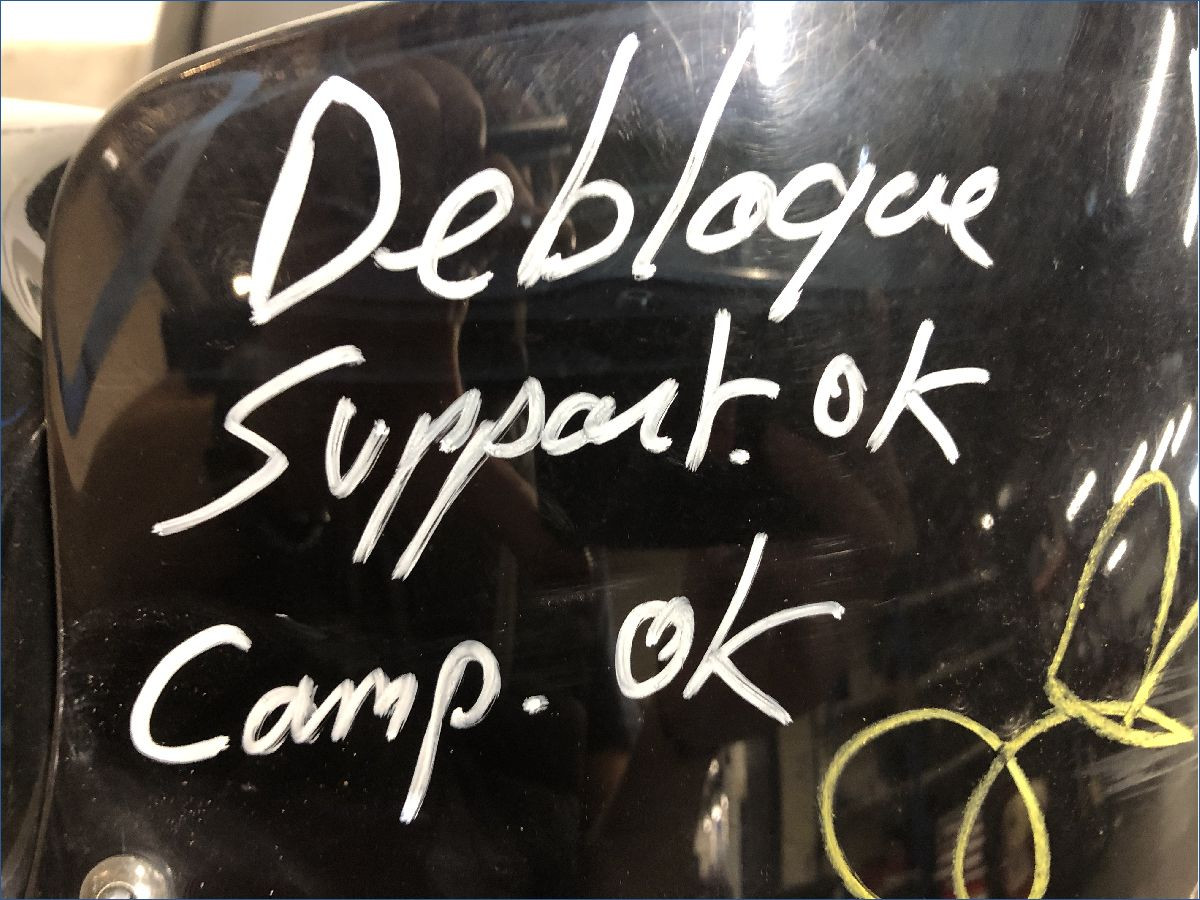 Debloque
Support. OK
Camp. OK